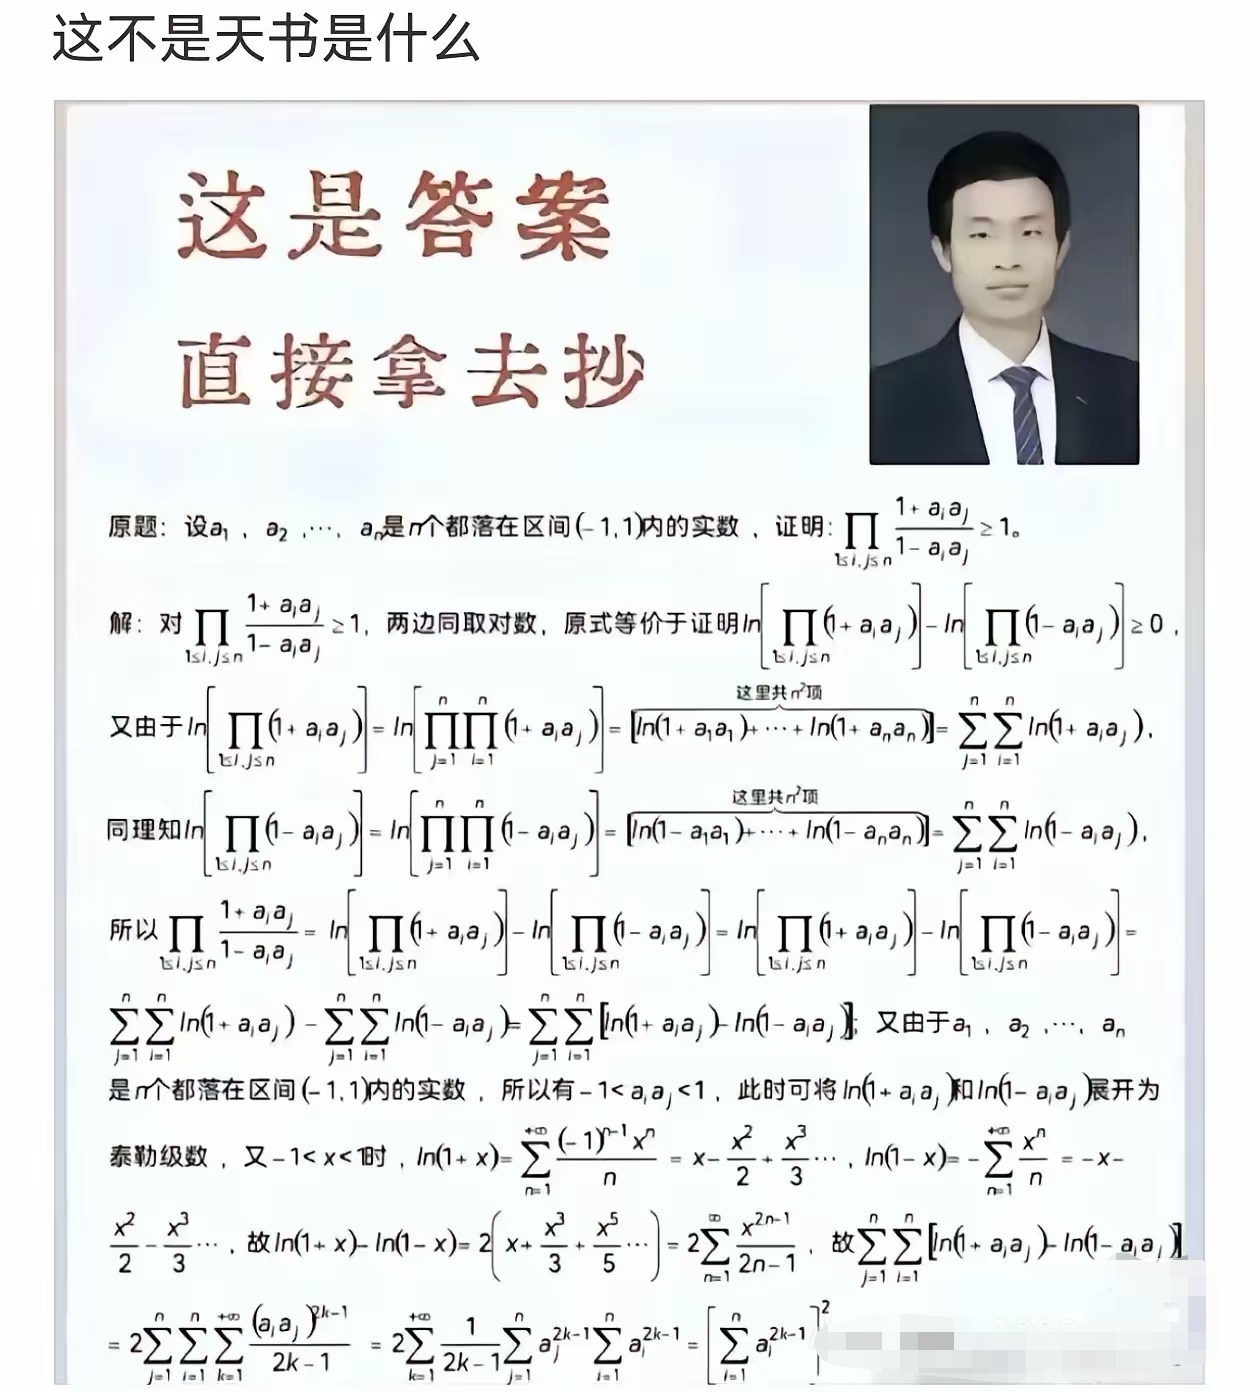 这不是天书是什么
这是答案
直接拿去抄
原题：设a₁，a₂，…，aₙ是n个都落在区间(-1,1)内的实数，证明：∏_{1≤i,j≤n} (1+aᵢaⱼ)/(1-aᵢaⱼ) ≥1。
解：对∏_{1≤i,j≤n} (1+aᵢaⱼ)/(1-aᵢaⱼ) ≥1，两边同取对数，原式等价于证明ln[∏_{1≤i,j≤n}(1+aᵢaⱼ)]-ln[∏_{1≤i,j≤n}(1-aᵢaⱼ)]≥0，
这里共n²项
又由于ln[∏_{1≤i,j≤n}(1+aᵢaⱼ)]=ln[∏_{j=1}^{n}∏_{i=1}^{n}(1+aᵢaⱼ)]=[ln(1+a₁a₁)+…+ln(1+aₙaₙ)]=∑_{j=1}^{n}∑_{i=1}^{n}ln(1+aᵢaⱼ)，
这里共n²项
同理知ln[∏_{1≤i,j≤n}(1-aᵢaⱼ)]=ln[∏_{j=1}^{n}∏_{i=1}^{n}(1-aᵢaⱼ)]=[ln(1-a₁a₁)+…+ln(1-aₙaₙ)]=∑_{j=1}^{n}∑_{i=1}^{n}ln(1-aᵢaⱼ)，
所以∏_{1≤i,j≤n} (1+aᵢaⱼ)/(1-aᵢaⱼ)=ln[∏_{1≤i,j≤n}(1+aᵢaⱼ)]-ln[∏_{1≤i,j≤n}(1-aᵢaⱼ)]=ln[∏_{1≤i,j≤n}(1+aᵢaⱼ)]-ln[∏_{1≤i,j≤n}(1-aᵢaⱼ)]=
∑_{j=1}^{n}∑_{i=1}^{n}ln(1+aᵢaⱼ)-∑_{j=1}^{n}∑_{i=1}^{n}ln(1-aᵢaⱼ)=∑_{j=1}^{n}∑_{i=1}^{n}[ln(1+aᵢaⱼ)-ln(1-aᵢaⱼ)]；又由于a₁，a₂，…，aₙ
是n个都落在区间(-1,1)内的实数，所以有-1<aᵢaⱼ<1，此时可将ln(1+aᵢaⱼ)和ln(1-aᵢaⱼ)展开为
泰勒级数，又-1<x<1时，ln(1+x)=∑_{n=1}^{+∞} (-1)^{n-1}xⁿ/n = x-x²/2+x³/3…，ln(1-x)=-∑_{n=1}^{+∞} xⁿ/n = -x-
x²/2-x³/3…，故ln(1+x)-ln(1-x)=2(x+x³/3+x⁵/5…)=2∑_{n=1}^{∞} x^{2n-1}/(2n-1)，故∑_{j=1}^{n}∑_{i=1}^{n}[ln(1+aᵢaⱼ)-ln(1-aᵢaⱼ)]
=2∑_{j=1}^{n}∑_{i=1}^{n}∑_{k=1}^{+∞} (aᵢaⱼ)^{2k-1}/(2k-1) =2∑_{k=1}^{+∞} 1/(2k-1) ∑_{j=1}^{n}aⱼ^{2k-1}∑_{i=1}^{n}aᵢ^{2k-1}=[∑_{i=1}^{n}aᵢ^{2k-1}]²